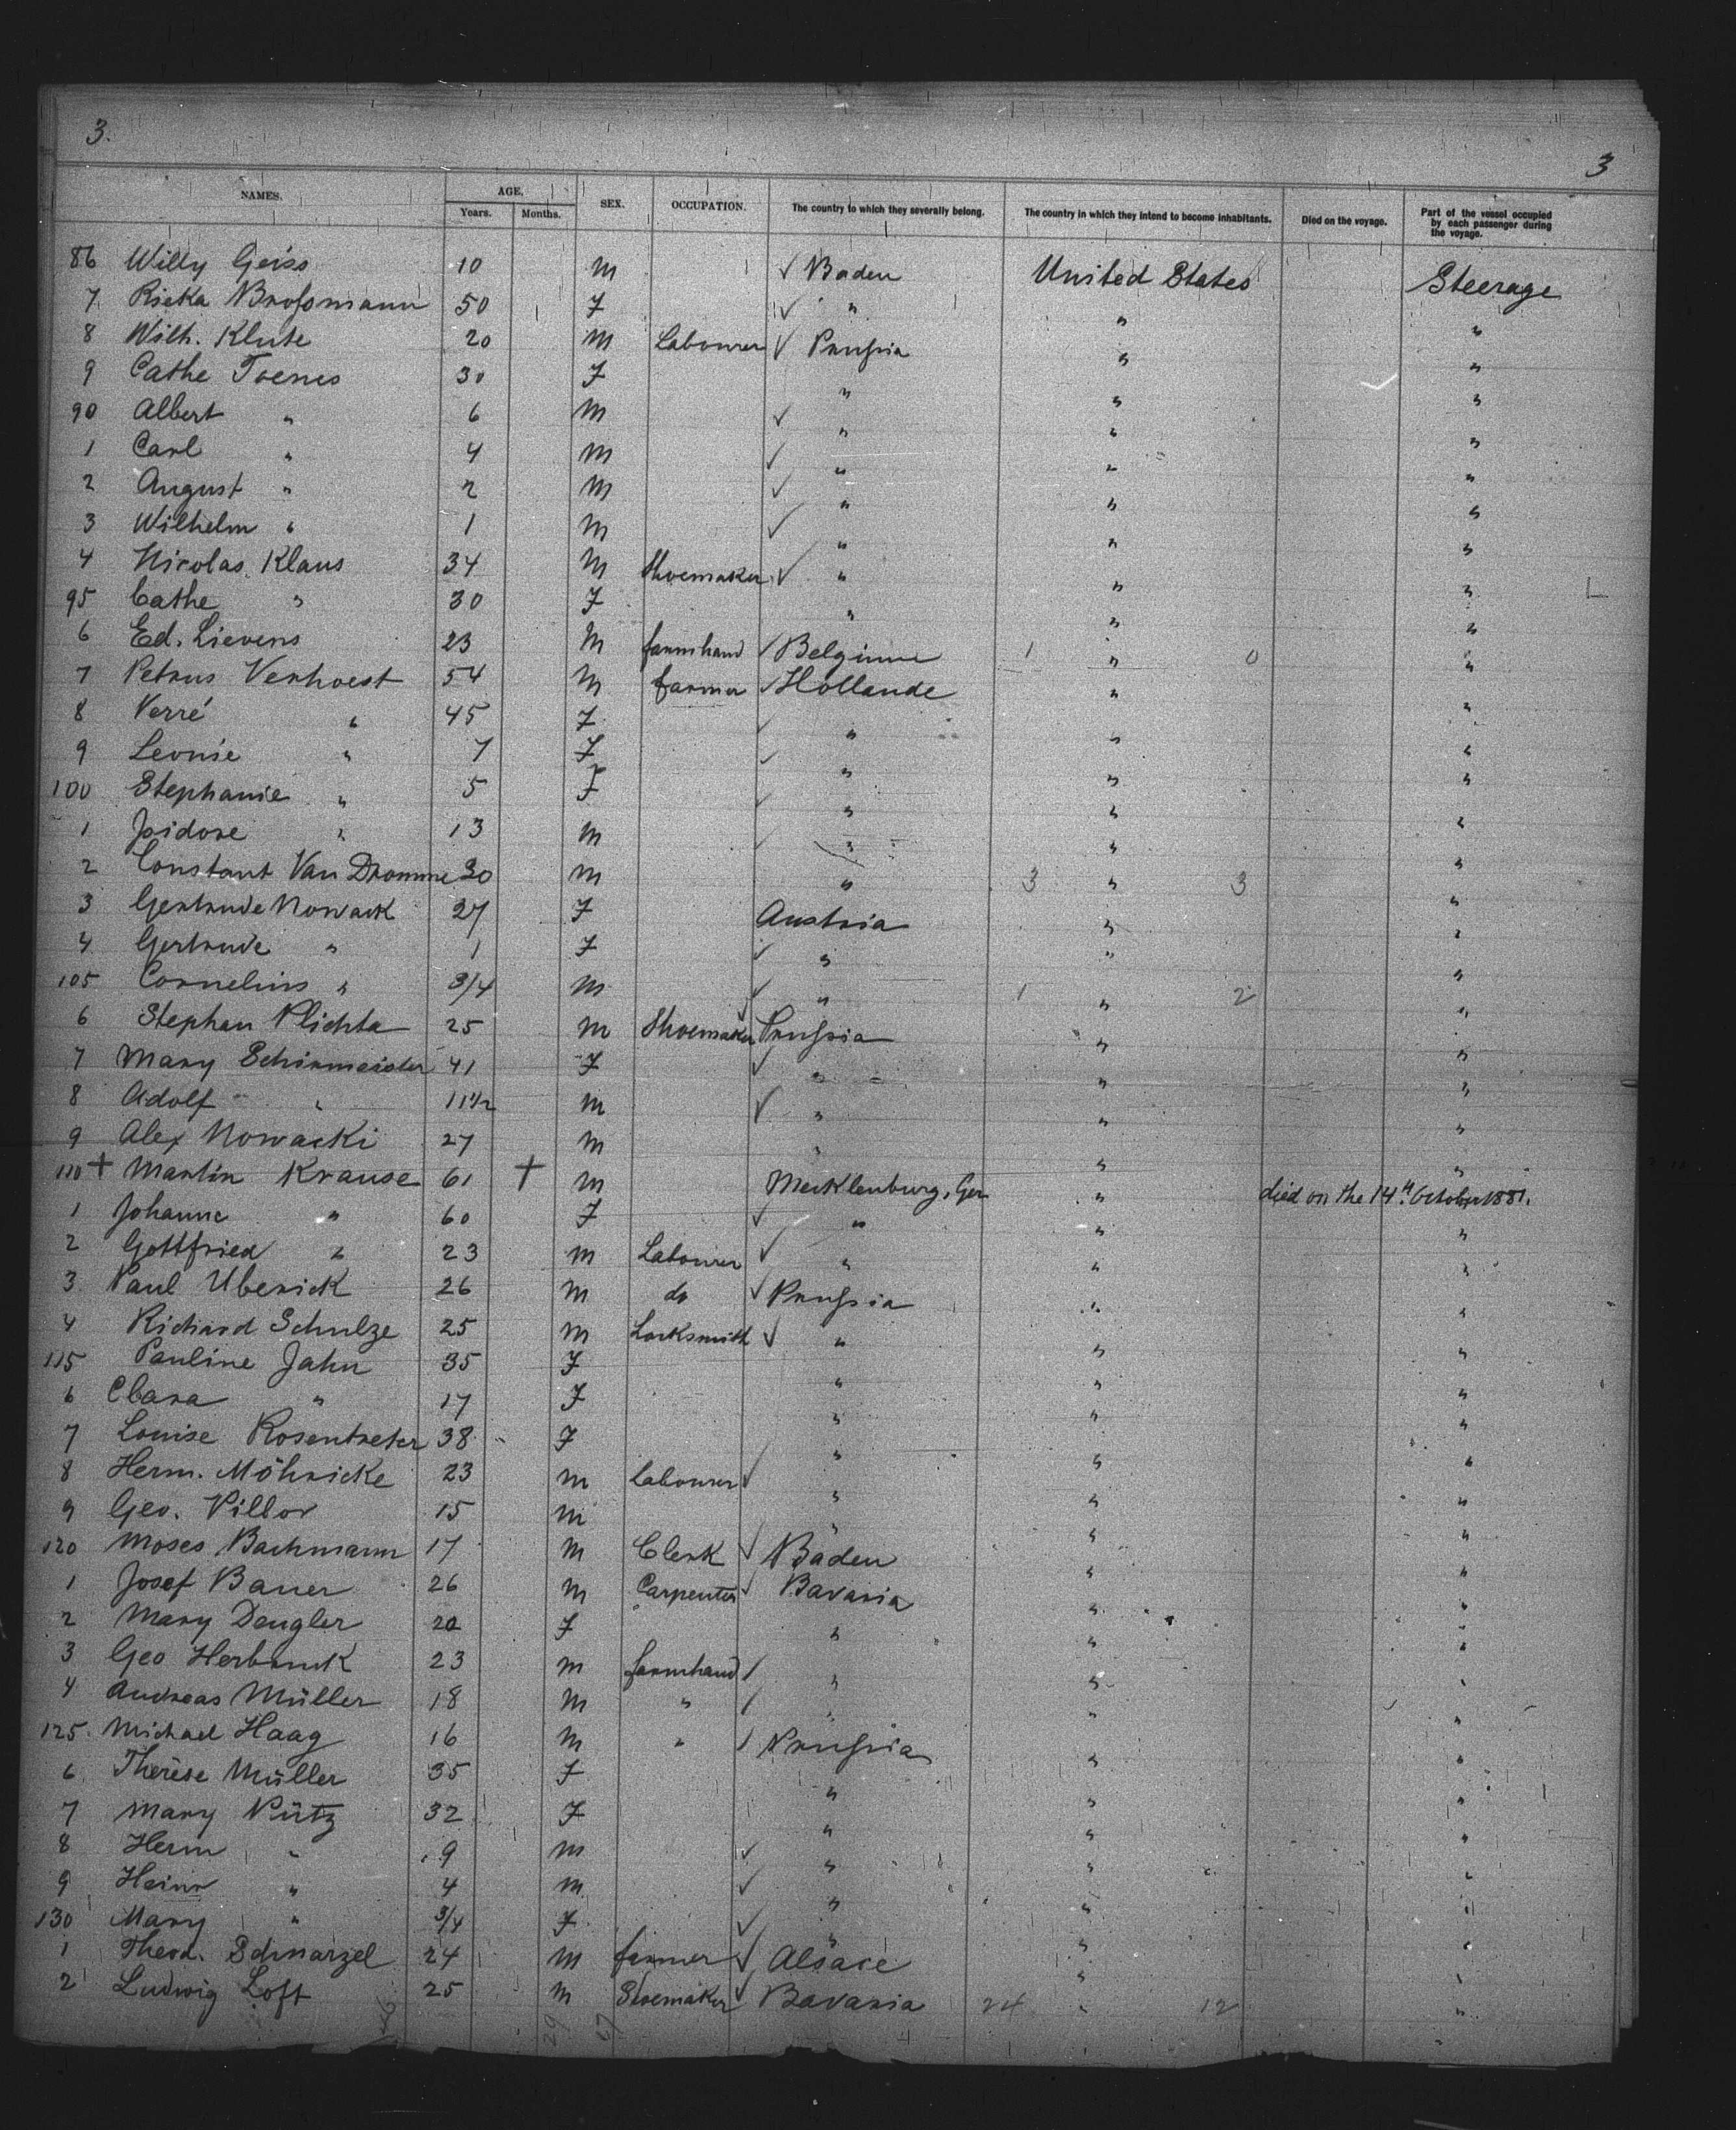 3.
3
NAMES. AGE. SEX. OCCUPATION. The country to which they severally belong. The country in which they intend to become inhabitants. Died on the voyage. Part of the vessel occupied by each passenger during the voyage.
Years. Months.
86 Willy Geiss 10 M ✓ Baden United States Steerage
7 Rieka Broßmann 50 F ✓ " " "
8 Wilh. Klute 20 M Labourer ✓ Prußia " "
9 Cathe Toenes 30 F " " "
90 Albert " 6 M ✓ " " "
1 Carl " 4 M ✓ " " "
2 August " 2 M ✓ " " "
3 Wilhelm " 1 M ✓ " " "
4 Nicolas Klaus 34 M Shoemaker ✓ " " "
95 Cathe " 30 F " " "
6 Ed. Lievens 23 M farmhand ✓ Belgium 1 " 0 "
7 Petrus Verhoest 54 M farmer ✓ Hollande " "
8 Verré " 45 F ✓ " " "
9 Leonie " 7 F ✓ " " "
100 Stephanie " 5 F ✓ " " "
1 Isidore " 13 M ✓ " " "
2 Constant Van Dromme 30 M " 3 " 3 "
3 Gertrude Nowack 27 F Austria " "
4 Gertrude " 1 F ✓ " " "
105 Cornelius " 3/4 M ✓ " 1 " 2 "
6 Stephan Plichta 25 M Shoemaker ✓ Prußia " "
7 Mary Schirmeister 41 F ✓ " " "
8 Adolf " 11 1/2 M ✓ " " "
9 Alex Nowacki 27 M " " "
110 + Martin Krause 61 + M Mecklenburg, Ger " died on the 14th October 1881.
1 Johanne " 60 F ✓ " " "
2 Gottfried " 23 M Labourer ✓ " " "
3 Paul Uberick 26 M do ✓ Prußia " "
4 Richard Schulze 25 M Locksmith ✓ " " "
115 Pauline Jahn 35 F " " "
6 Clara " 17 F " " "
7 Louise Rosentreter 38 F " " "
8 Herm. Möhricke 23 M Labourer ✓ " " "
9 Geo. Villor 15 M " " "
120 Moses Bachmann 17 M Clerk ✓ Baden " "
1 Josef Bauer 26 M Carpenter ✓ Bavaria " "
2 Mary Dengler 20 F " " "
3 Geo Herbruck 23 M farmhand / " " "
4 Andreas Müller 18 M " / " " "
125 Michael Haag 16 M " / Prußia " "
6 Therèse Müller 35 F " " "
7 Mary Pütz 32 F " " "
8 Herm " 9 M ✓ " " "
9 Heinr " 4 M ✓ " " "
130 Mary " 3/4 F ✓ " " "
1 Theod. Schwarzel 24 M farmer ✓ Alsace " "
2 Ludwig Loft 25 M Shoemaker ✓ Bavaria 24 " 12 "
29